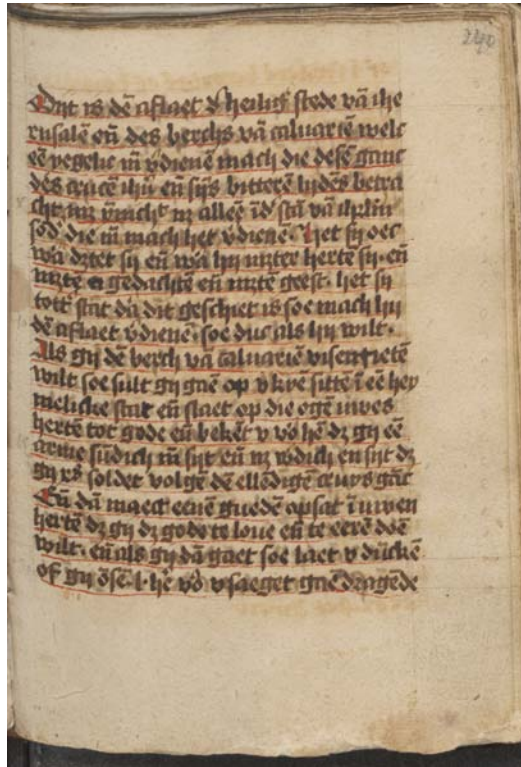 240
Dit is dē aflaet d' heilig' stede vā ihe
rusalē eñ des berchs vā caluariē welc
eē yegelic m̄ v'dienē mach die desē ganc
des crucē ihū eñ sijs bitterē lydēs betra
cht
söd' die m̄ mach het v'dienē. Het sy oec
wa dattet sy eñ wa hy mztter hertē sy. eñ
mztē gedachtē eñ mztē geest. het sy
tott' stat da dit geschiet is soe mach hy
dē aflaet v'dienē. soe dicke als hy wilt.
Als gy dē berch vā caluariē visentietē
wilt soe sult gy gaē op v knē sittē ī eē hey
melicke stat eñ slaet op die ogē uwes
hertē tot gode eñ bekēt v vo' hē dz gy eē
arme sūdich m̄ sijt eñ nz w'dich en sijt dz
gy xp̄s soldet volgē dē ellēdigē cruys gāc
Eñ dā maect eenē guedē opsat ī uwen
hertē dz gy dz gode te loue eñ te eerē doē
wilt. eñ als gy dā gaet soe laet v dūckē
of gy ōsē l. he' vo' v saeget gaē dragēde